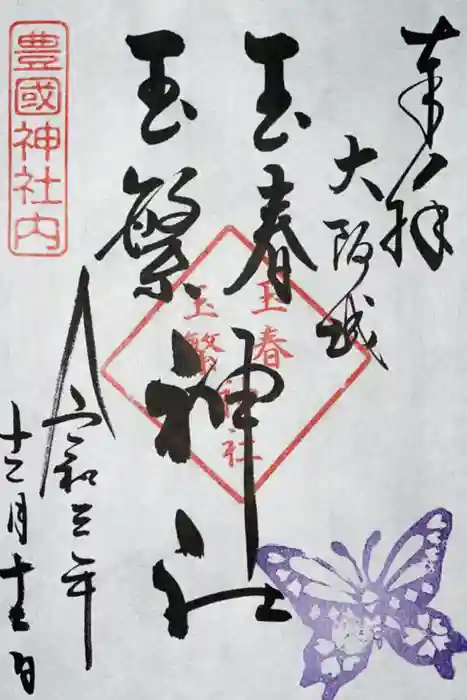 奉拝
大阪城
玉春
玉繁
神社
玉春
玉繁
神社
令和三年
十二月
豊國神社内